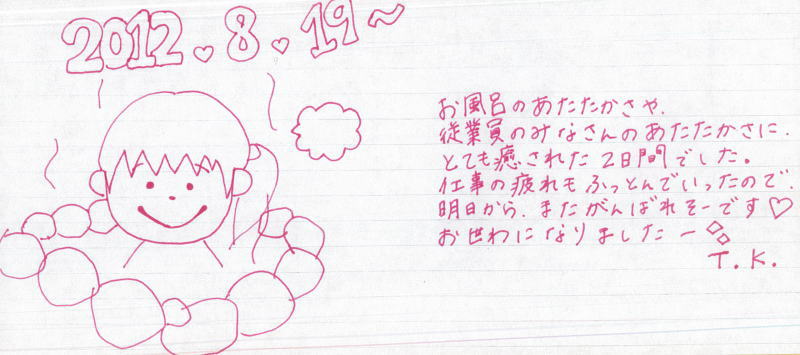 2012.♥8.♥19〜
お風呂のあたたかさや、
従業員のみなさんのあたたかさに、
とても癒された2日間でした。
仕事の疲れもふっとんでいったので、
明日から、またがんばれそーです♡
お世わになりましたー
T.K.